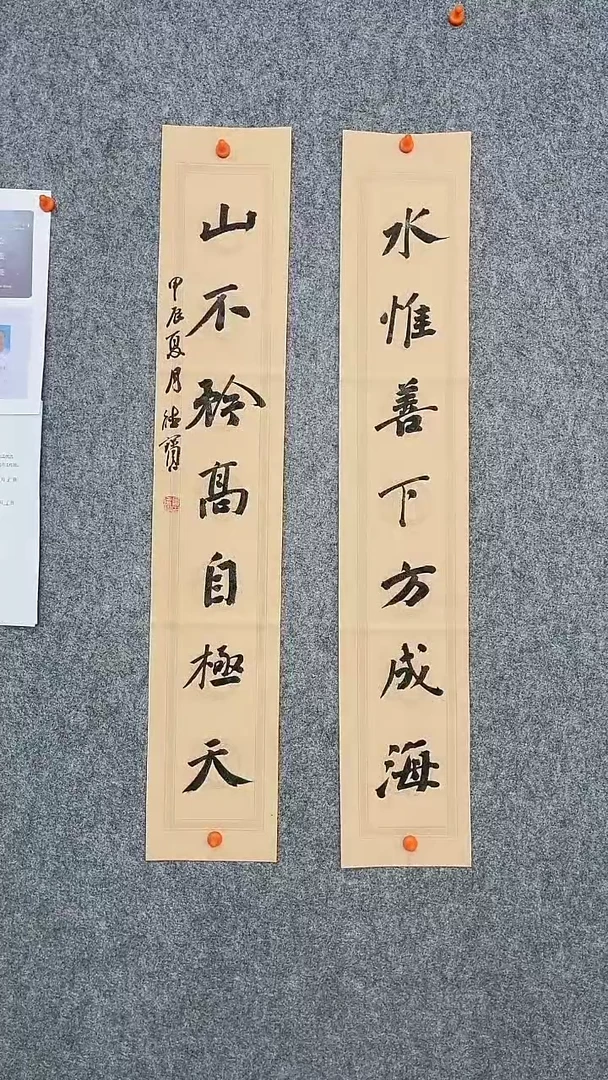 水惟善下方成海
山不矜高自極天
甲辰夏月